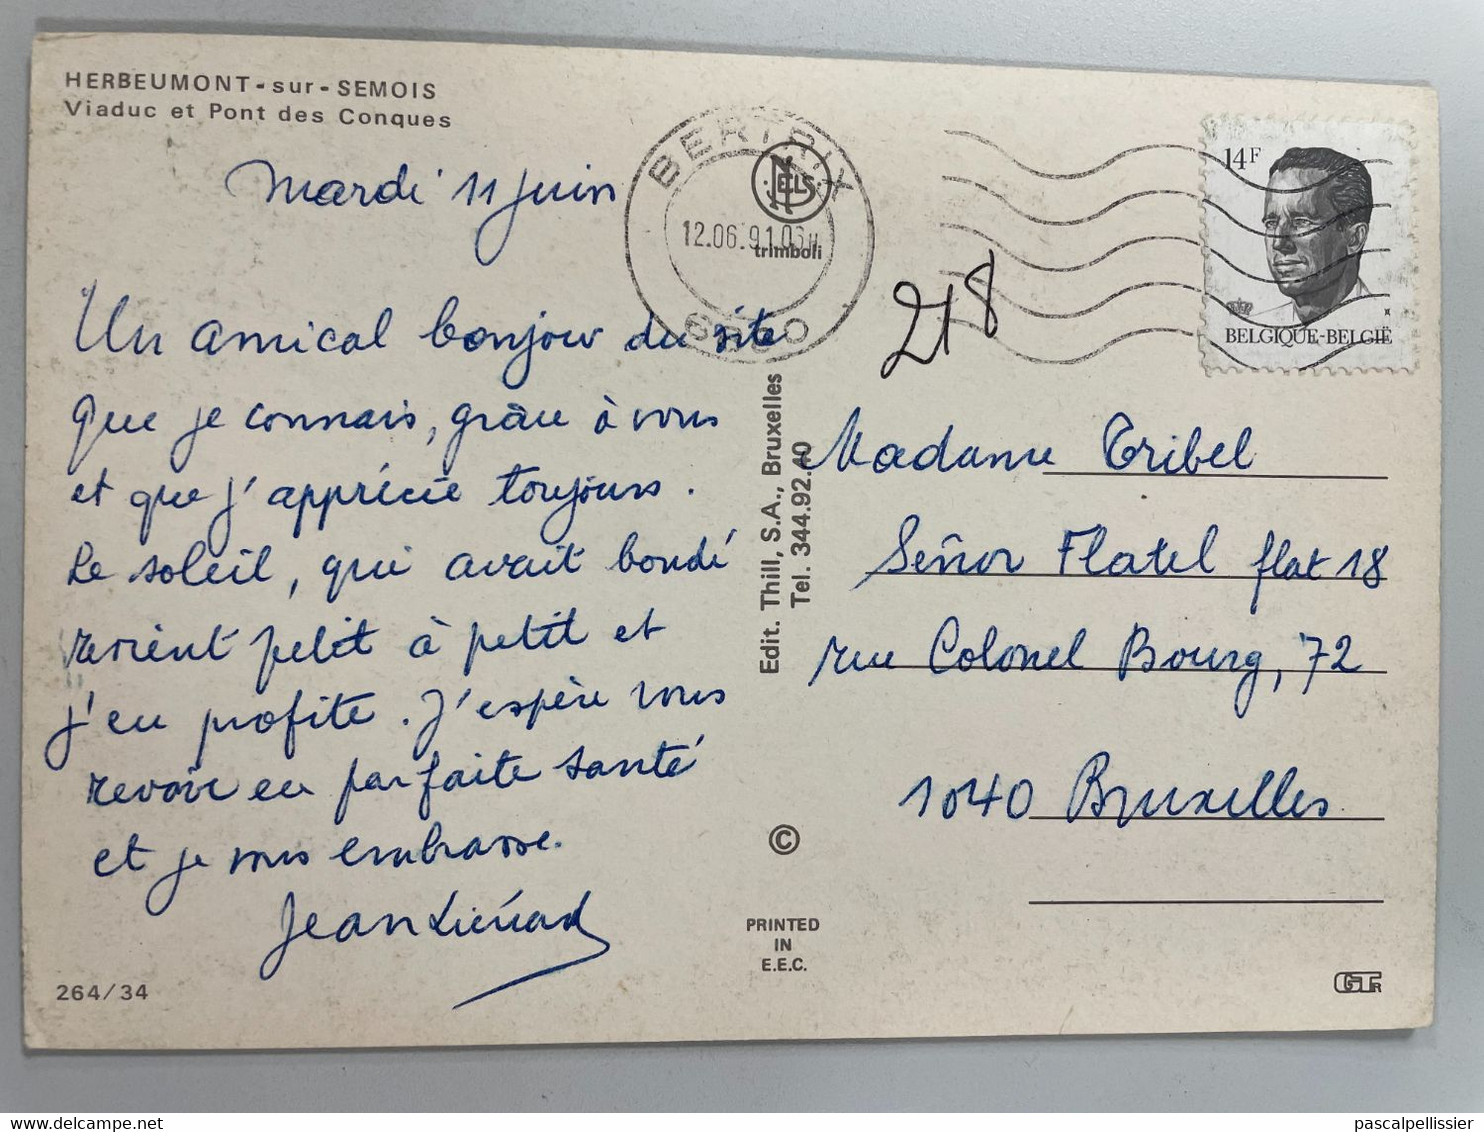 HERBEUMONT-sur-SEMOIS
Viaduc et Pont des Conques
Mardi 11 Juin
Un amical bonjour du site
que je connais, grâce à vous
et que j'apprécie toujours.
Le soleil, qui avait boudé
revient petit à petit et
j'en profite. J'espère vous
revoir en parfaite santé
et je vous embrasse.
Jean Liénard
264/34
BERTRIX
12.06.91
6880
NELS
trimboli
218
14F
BELGIQUE-BELGIË
Edit. Thill, S.A., Bruxelles
Tel. 344.92.40
©
PRINTED
IN
E.E.C.
Madame Tribel
Señor Flatel flat 18
rue Colonel Bourg, 72
1040 Bruxelles
delcampe.net
pascalpellissier